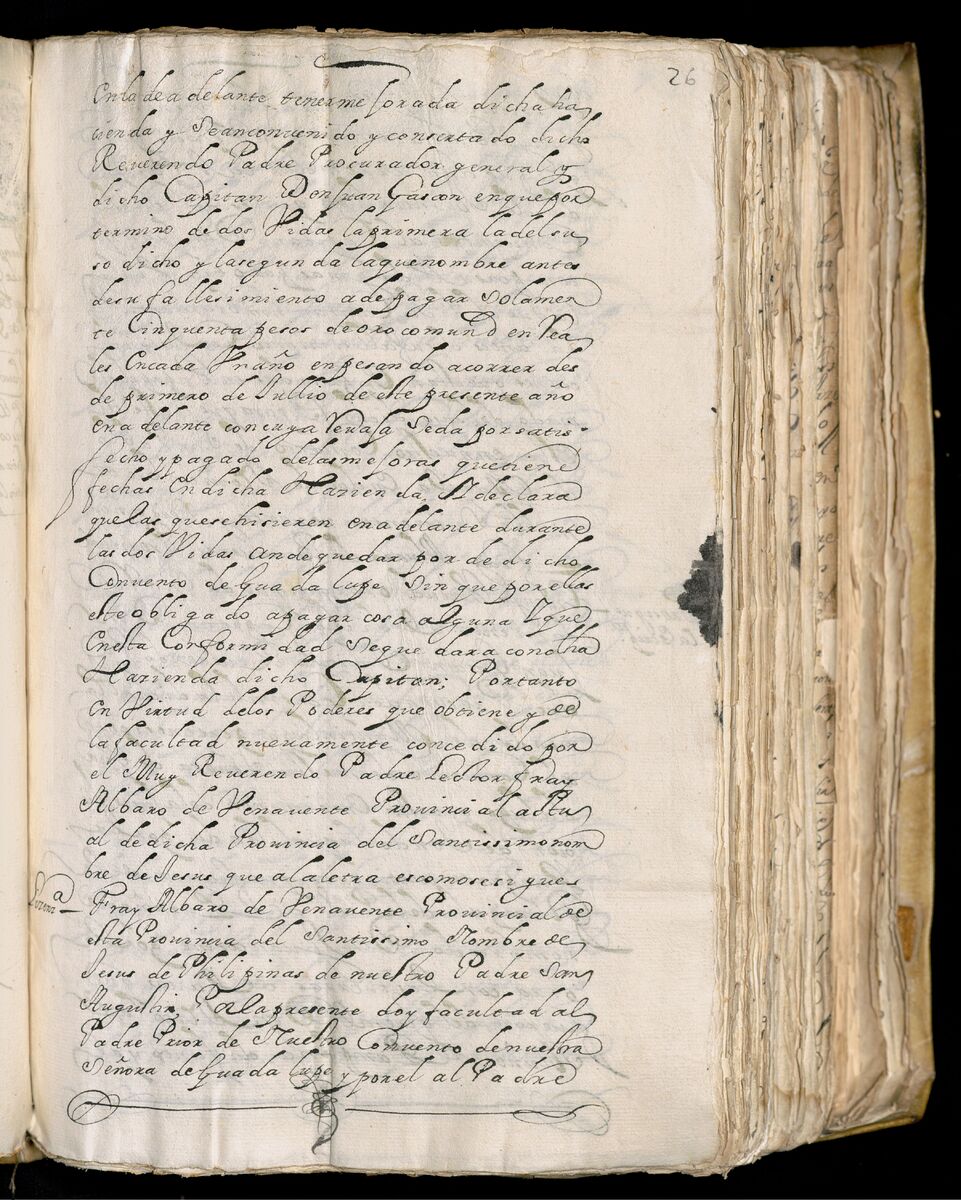 26
en la de adelante tener mejorada dicha ha
zienda y se an convenido y consertado dicho
Reverendo Padre Procurador general y
dicho Capitan Don Juan Gascon en que por
termino de dos Vidas la primera la del su
so dicho y la segunda la que nombre antes
de su fallesimiento a de pagar solamen
te Cinquenta pesos de oro comun en Rea
les en cada Vn año enpesando a correr des
de primero de Jullio de este presente año
en adelante con cuya Revaja se da por satis
fecho y pagado de las mejoras que tiene
fechas en dicha Hazienda, Y declara
que las que se hisieren en adelante durante
las dos Vidas an de quedar por de dicho
Convento de Guadalupe sin que por ellas
este obligado a pagar cosa alguna Y que
en esta Conformidad se quedara con dha
Hazienda dicho Capitan; Por tanto
en Virtud de los Poderes que obtiene y de
la facultad nuevamente concedido por
el Muy Reverendo Padre Lector fray
Albaro de Venavente Provincial actu
al de dicha Provincia del Santissimo nom
bre de Jesus que a la letra es como se sigue
Lizenᵃ
Fray Albaro de Venavente Provincial de
esta Provincia del Santissimo Nombre de
Jesus de Philipinas de nuestro Padre San
Augustin, Por la presente doy facultad al
Padre Prior de Nuestro Convento de nuestra
Señora de Guadalupe y por el al Padre